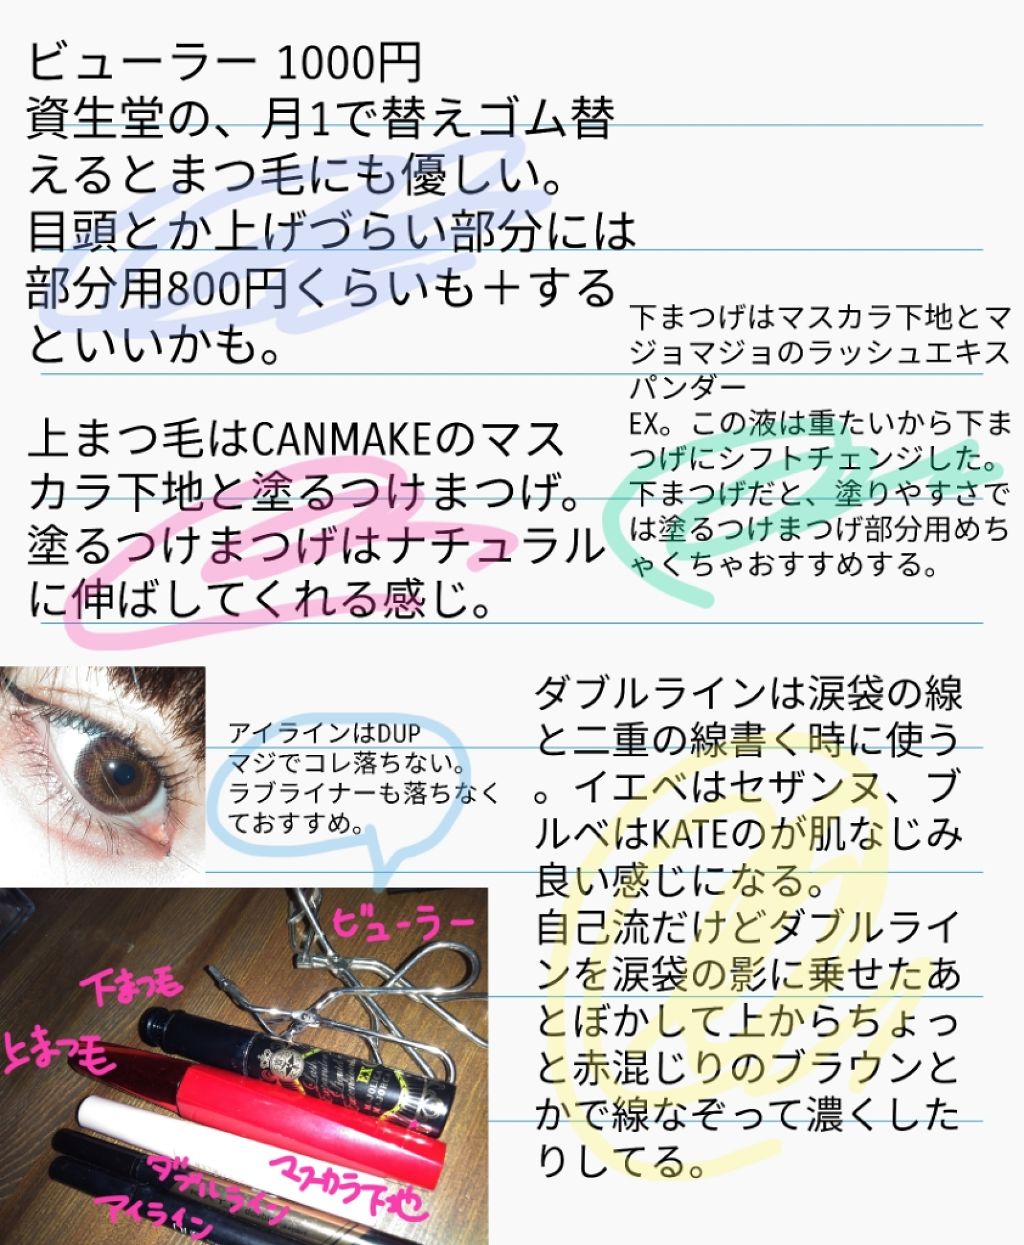 ビューラー 1000円
資生堂の、月1で替えゴム替
えるとまつ毛にも優しい。
目頭とか上げづらい部分には
部分用800円くらいも＋する
といいかも。
下まつげはマスカラ下地とマ
ジョマジョのラッシュエキス
パンダー
EX。この液は重たいから下ま
つげにシフトチェンジした。
下まつげだと、塗りやすさで
は塗るつけまつげ部分用めち
ゃくちゃおすすめする。
上まつ毛はCANMAKEのマス
カラ下地と塗るつけまつげ。
塗るつけまつげはナチュラル
に伸ばしてくれる感じ。
アイラインはDUP
マジでコレ落ちない。
ラブライナーも落ちなく
ておすすめ。
ダブルラインは涙袋の線
と二重の線書く時に使う
。イエベはセザンヌ、ブ
ルベはKATEのが肌なじみ
良い感じになる。
自己流だけどダブルライ
ンを涙袋の影に乗せたあ
とぼかして上からちょっ
と赤混じりのブラウンと
かで線なぞって濃くした
りしてる。
ビューラー
下まつ毛
上まつ毛
EX
マスカラ下地
ダブルライン
アイライン